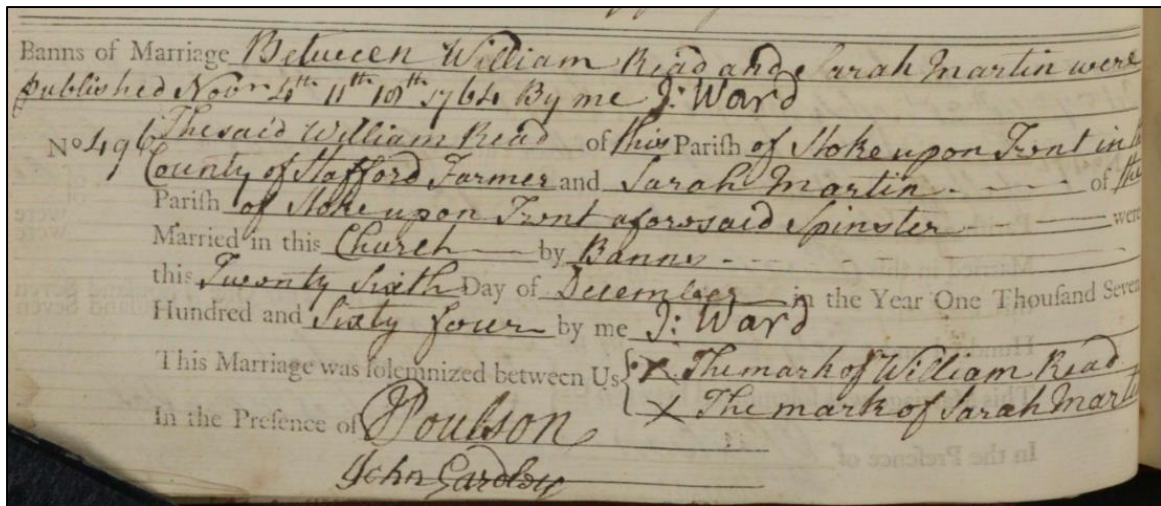 Banns of Marriage Between William Read and Sarah Martin were
published Novr 4th 11th 18th 1764 By me J: Ward
No 496 The said William Read of this Parish of Stoke upon Trent in the
County of Stafford Farmer and Sarah Martin of the
Parish of Stoke upon Trent aforesaid Spinster were
Married in this Church by Banns
this Twenty Sixth Day of December in the Year One Thousand Seven
Hundred and Sixty four by me J: Ward
This Marriage was solemnized between Us X The mark of William Read
X The mark of Sarah Marti
In the Presence of Poulson
John